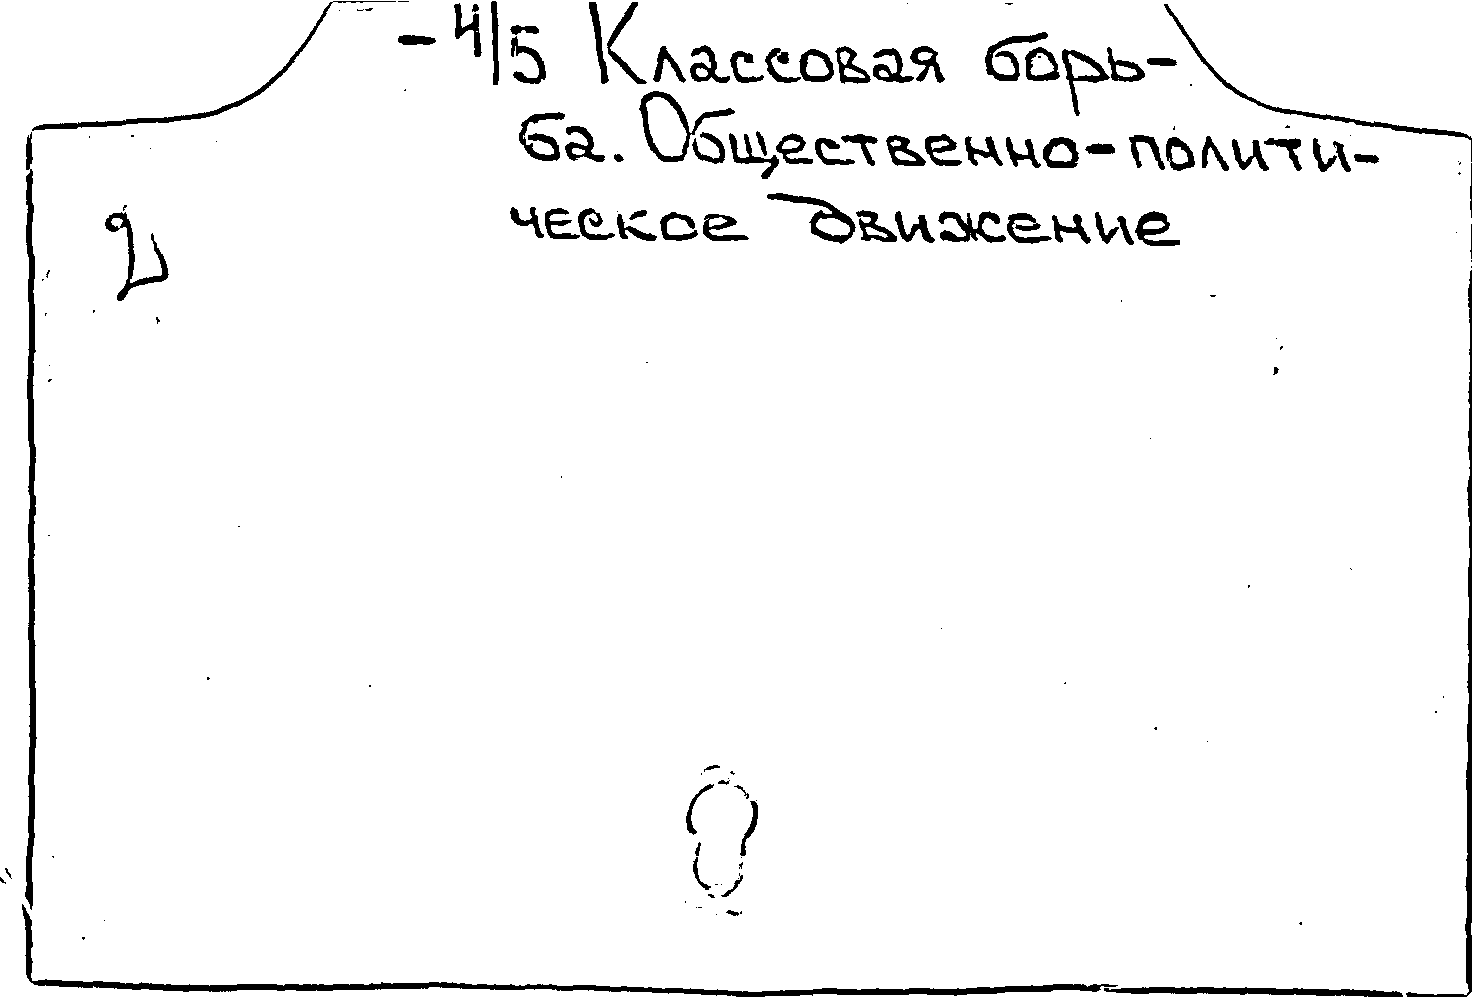 -4/5 Классовая борь-
ба. Общественно-полити-
ческое движение